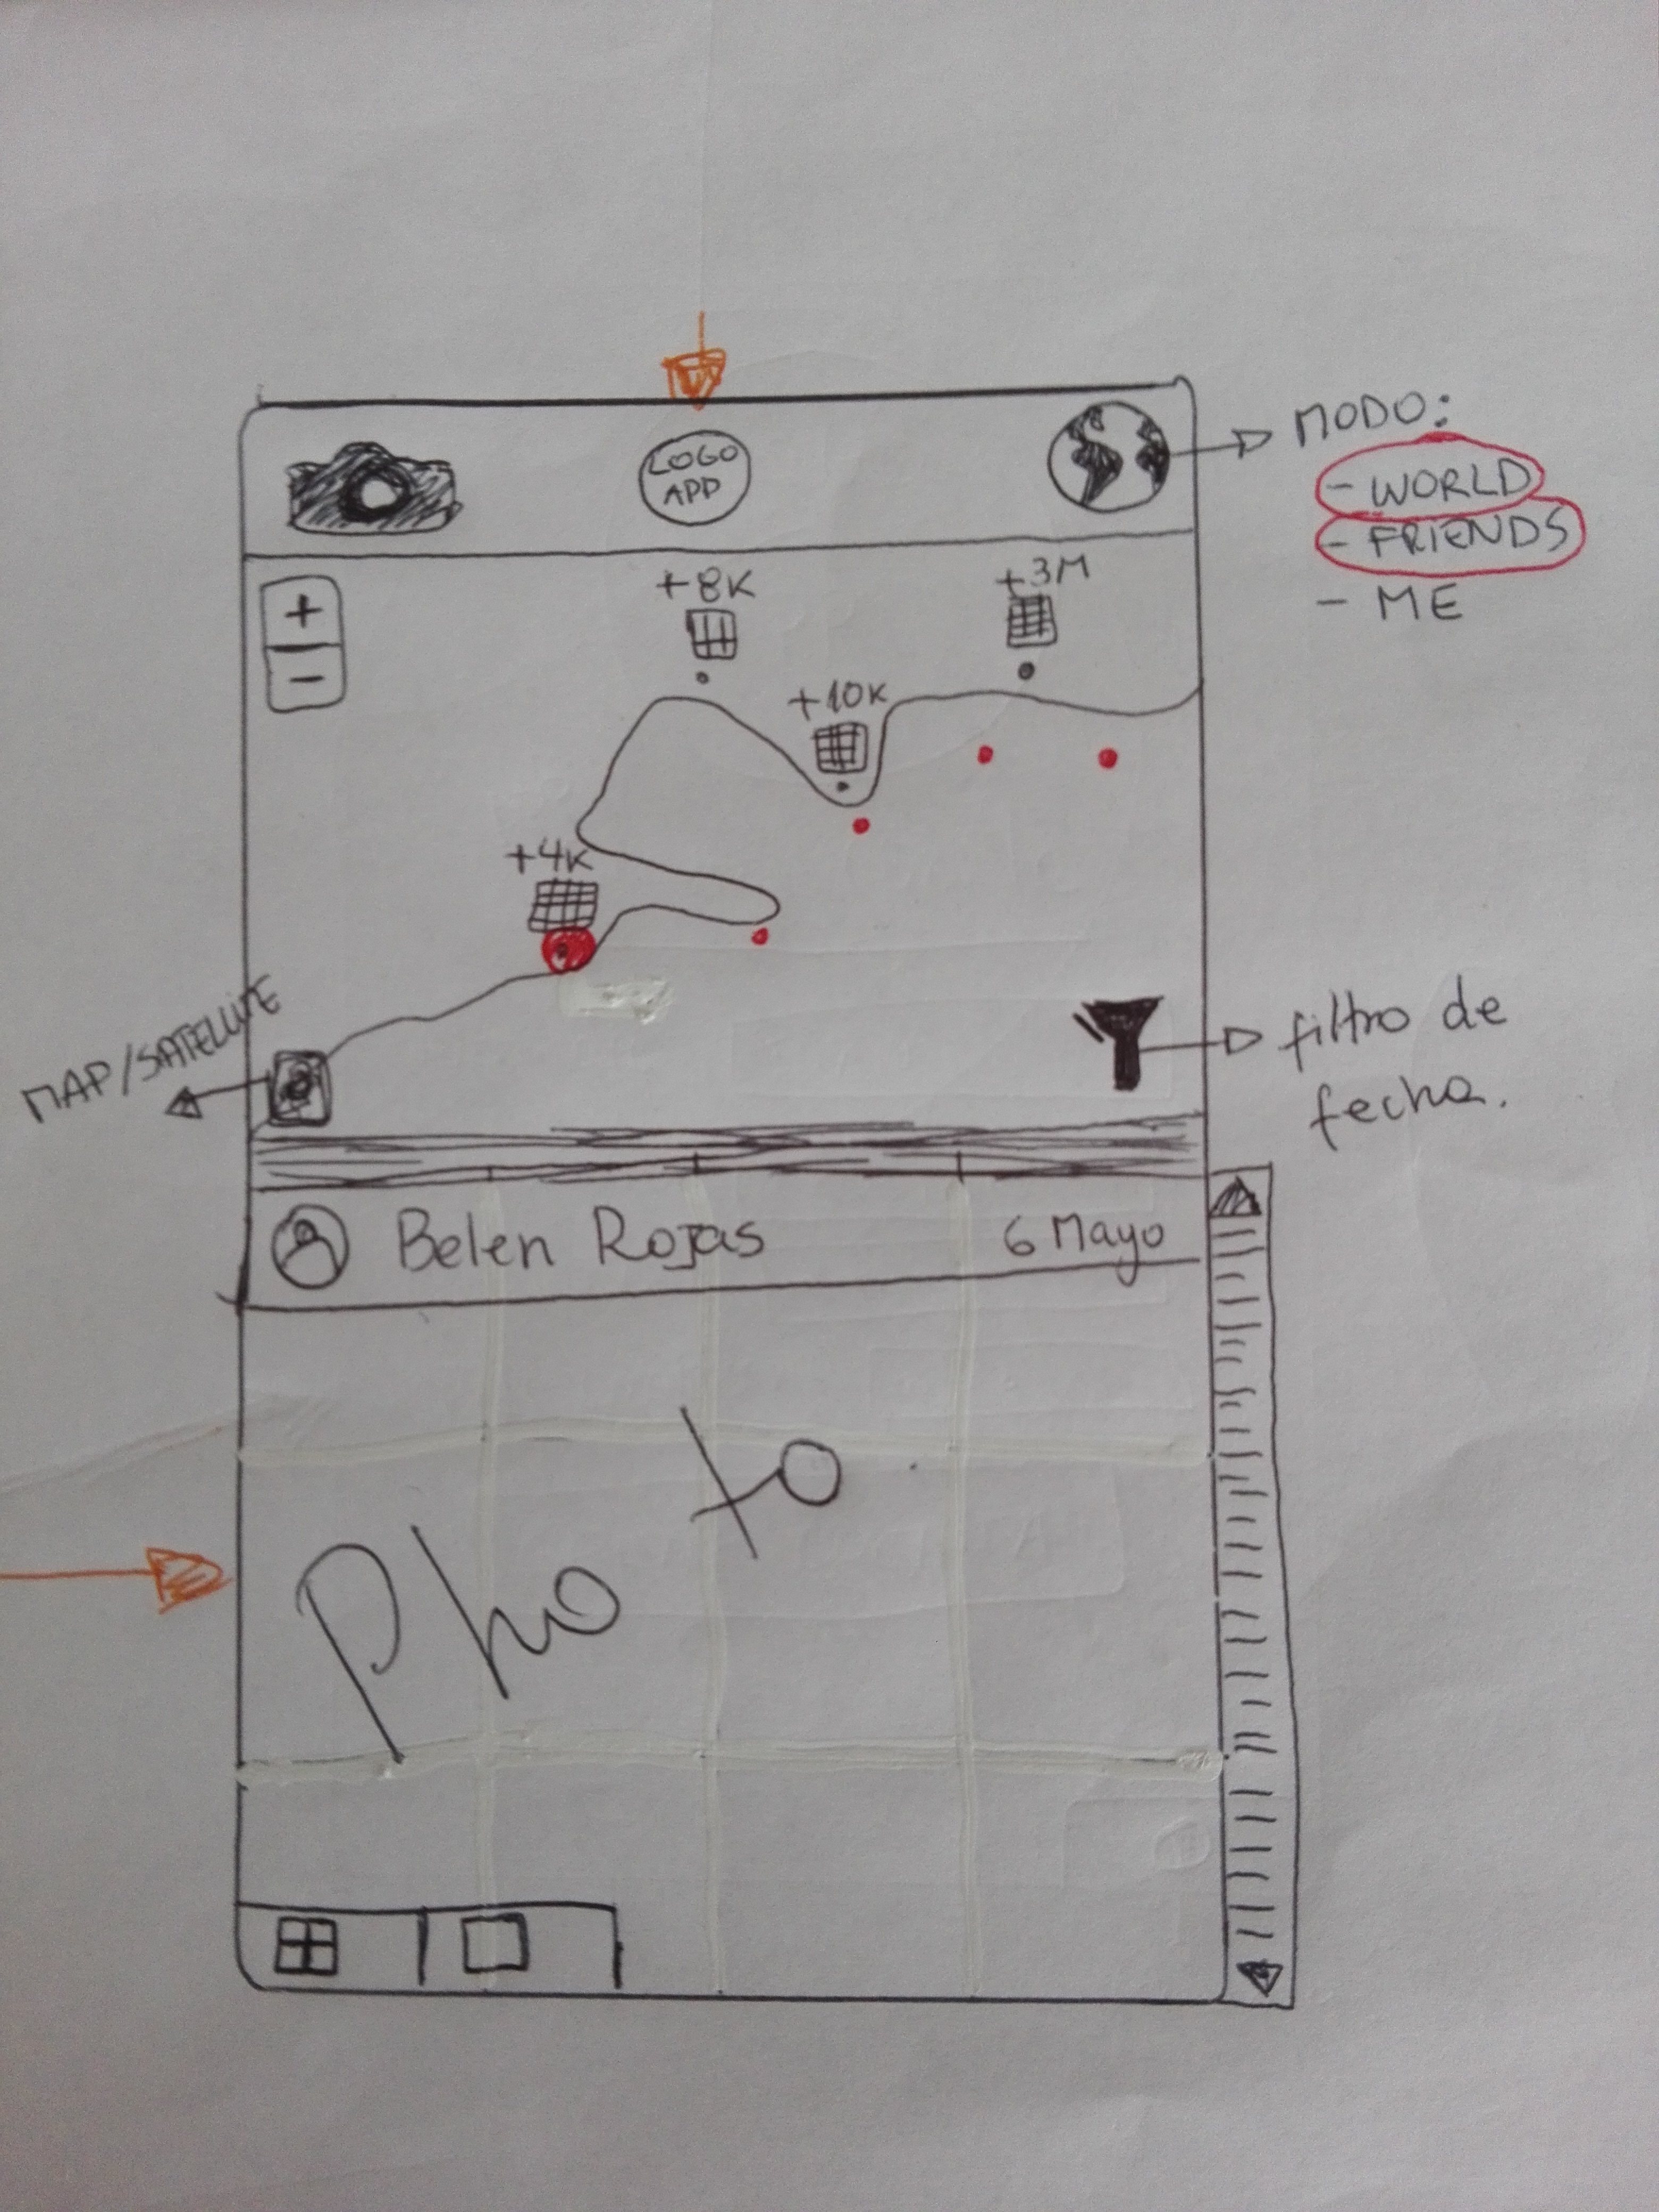 LOGO
APP
MODO:
- WORLD
- FRIENDS
- ME
+
-
+8K
+3M
+10K
+4K
MAP/SATELLITE
filtro de
fecha.
Belen Rojas
6 Mayo
Photo